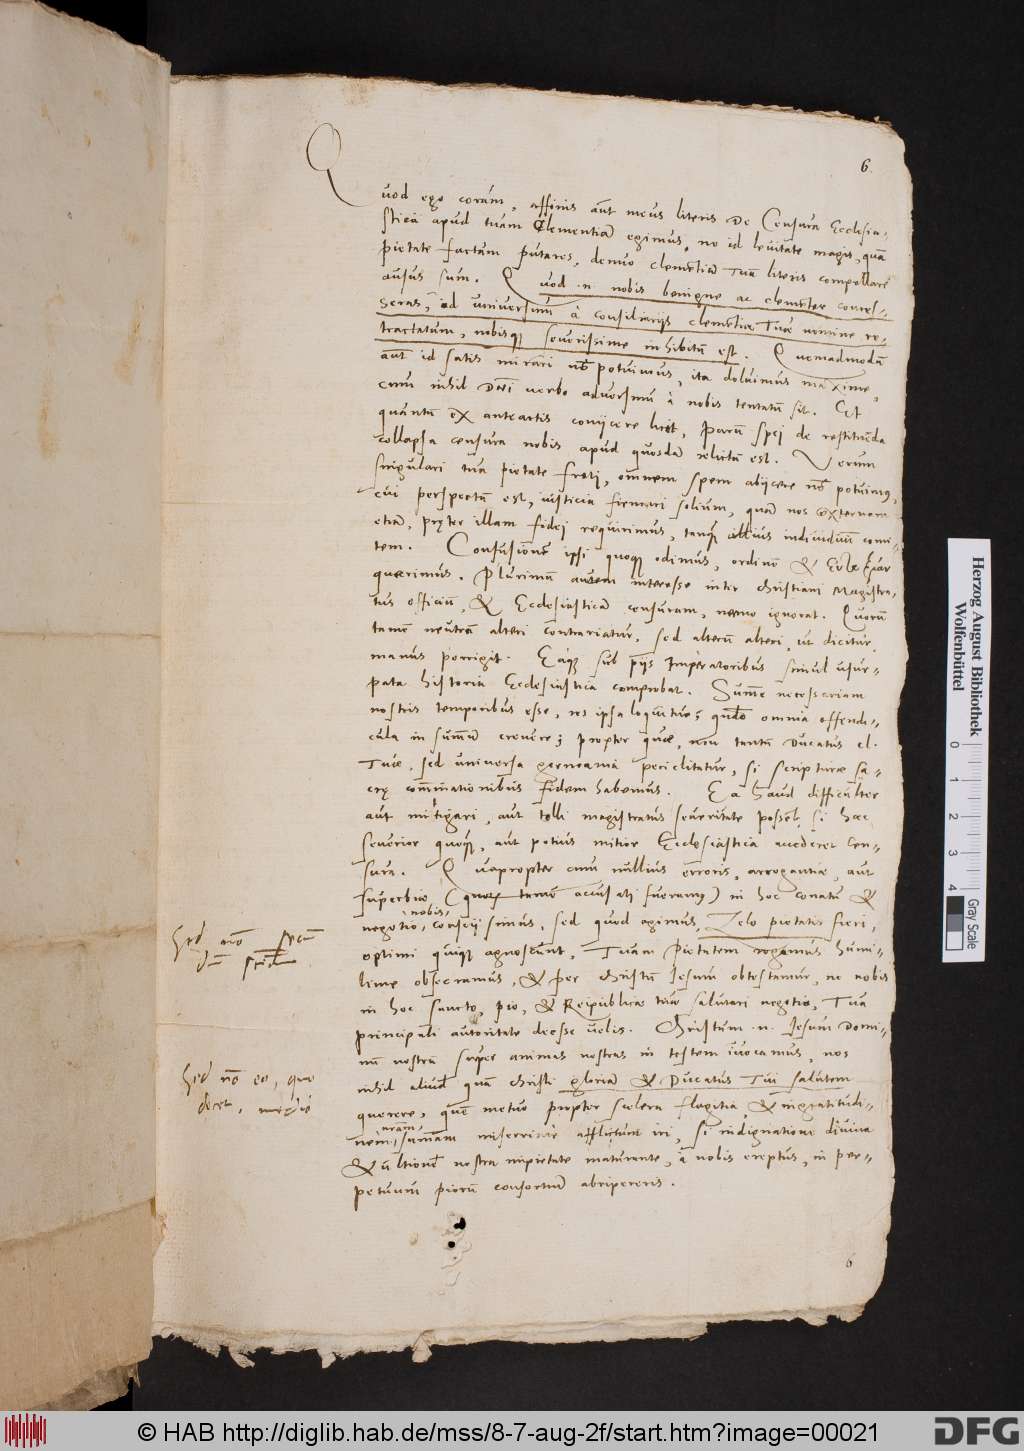 6.
Quod ego coram, affinis aut meus literis De Censura Ecclesia-
stica apud tuam Clementiã egimus, ne id leuitate magis, quã
pietate factam putares, denuo clemẽtiã Tuã literis compellare
ausus sum. Quod .n. nobis benigne ac clemẽter conces-
seras, id vniversum à consiliarijs clemẽtiæ Tuæ nomine re-
tractatum, nobisque seuerissime inhibitũ est. Quemadmodũ
aut id satis mirari nõ potuimus, ita doluimus maxime,
cum nihil Dñi verbo aduersum à nobis tentatũ sit. Et
quantũ ex anteactis conijcere licet, parũ spei de restituenda
collapsa censura nobis apud quosdã relictũ est. Verum
singulari tua pietate freti, omnem spem abijcere nõ potuimus,
cui perspectũ est, iusticia firmari solium, quã nos externam
etiã, præter illam fidej requirimus, tanq̃ illius indiuiduũ comi-
tem. Confusionẽ ipsi quoque odimus, ordinẽ &
quærimus. Plurimũ autem interesse inter Christiani Magistra-
tus officiũ, & Ecclesiasticã censuram, nemo ignorat. Quorũ
tamẽ neutrũ alteri contrariatur, sed alterũ alteri, ut dicitur,
manus porrigit. Eaque sub pijs Imperatoribus simul usur-
pata historia Ecclesiastica comprobat. Summe necessariam
nostris temporibus esse, res ipsa loquitur; quãdo omnia offendi-
cula in summũ creuere; propter quæ, non tantũ Ducatus cl.
Tuæ, sed vniuersa germania periclitatur, si scripturæ sa-
cræ comminationibus fidem habemus. Ea haud difficulter
aut mitigari, aut tolli magistratus seueritate possẽt, si hæc
seuerior quoque, aut potius mitior Ecclesiastica accederet cen-
sura. Quapropter cum nullius erroris, arrogantiæ, aut
superbiæ, (quorum tamẽ accusati fueramus) in hoc conatu &
negotio, nobis conscij simus, sed quod agimus, Zelo pietatis fieri,
optimi quique agnoscunt, Tuam Pietatem rogamus humi-
lime obsecramus, & per Christũ Jesum obtestamur, ne nobis
in hoc sancto, pio, & Reipublicæ tuæ salutari negotio, Tua
principali autoritate deesse uelis. Christum .n. Jesum Domi-
nũ nostrũ super animas nostras in testem inuocamus, nos
nihil aliud quã Christi gloriam & Ducatus Tui salutem
quærere, quẽ metuo propter scelera flagitia, & ingratitudi-
nem nr̃am, summam miserrime afflictum iri, si indignatione diuina
& ultionẽ nostra impietate maturante, à nobis ereptus, in per-
petuum piorũ consortiũ abripereris.
Sed nõ
Sed nõ eo, quo
decet,
6
Herzog August Bibliothek
Wolfenbüttel
0 1 2 3 4
Gray Scale
© HAB http://diglib.hab.de/mss/8-7-aug-2f/start.htm?image=00021
DFG